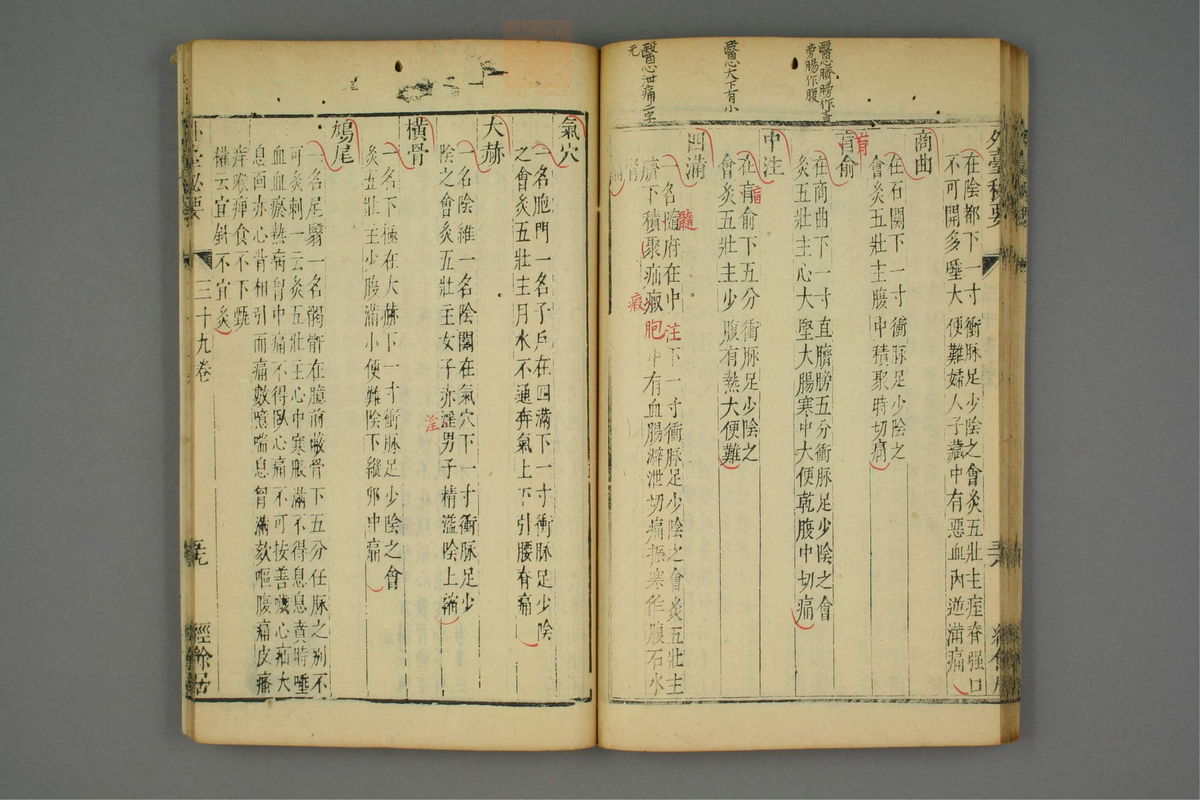 醫心臍膀作直
旁腸作腹
醫心大下有小
醫心泄痛二字
无
外臺秘要
在陰都下一寸衝脉足少陰之會灸五壯主痓脊強口
不可開多唾大便難婦人子藏中有惡血內逆滿痛
商曲
在石関下一寸衝脉足少陰之
會灸五壯主腹中積聚時切痛
肓俞
肓
在商曲下一寸直臍膀五分衝脉足少陰之會
灸五壯主心大堅大腸寒中大便乾腹中切痛
中注
在肓俞下五分衝脉足少陰之
肓
會灸五壯主少腹有熱大便難
四滿
一名隨府在中注下一寸衝脉足少陰之會灸五壯主
髓
臍下積聚疝瘕胞中有血腸澼泄切痛振寒作腹石水
瘕
腎痛
氣穴
一名胞門一名子戶在四滿下一寸衝脉足少陰
之會灸五壯主月水不通奔氣上下引腰脊痛
大赫
一名陰維一名陰關在氣穴下一寸衝脉足少
陰之會灸五壯主女子赤淫男子精溢陰上縮
淫
橫骨
一名下極在大赫下一寸衝脉足少陰之會
灸五壯主少腹滿小便難陰下縱卵中痛
鳩尾
一名尾翳一名𩩲骬在臆前蔽骨下五分任脉之別不
可灸刺一云灸五壯主心中寒脹滿不得息息賁時唾
血血瘀熱病胷中痛不得臥心痛不可按善噦心疝大
息面赤心背相引而痛數噫喘息胷滿欬嘔腹痛皮瘙
痒喉痺食不下甄
權云宜針不宜灸
外臺秘要
三十九卷
經餘居